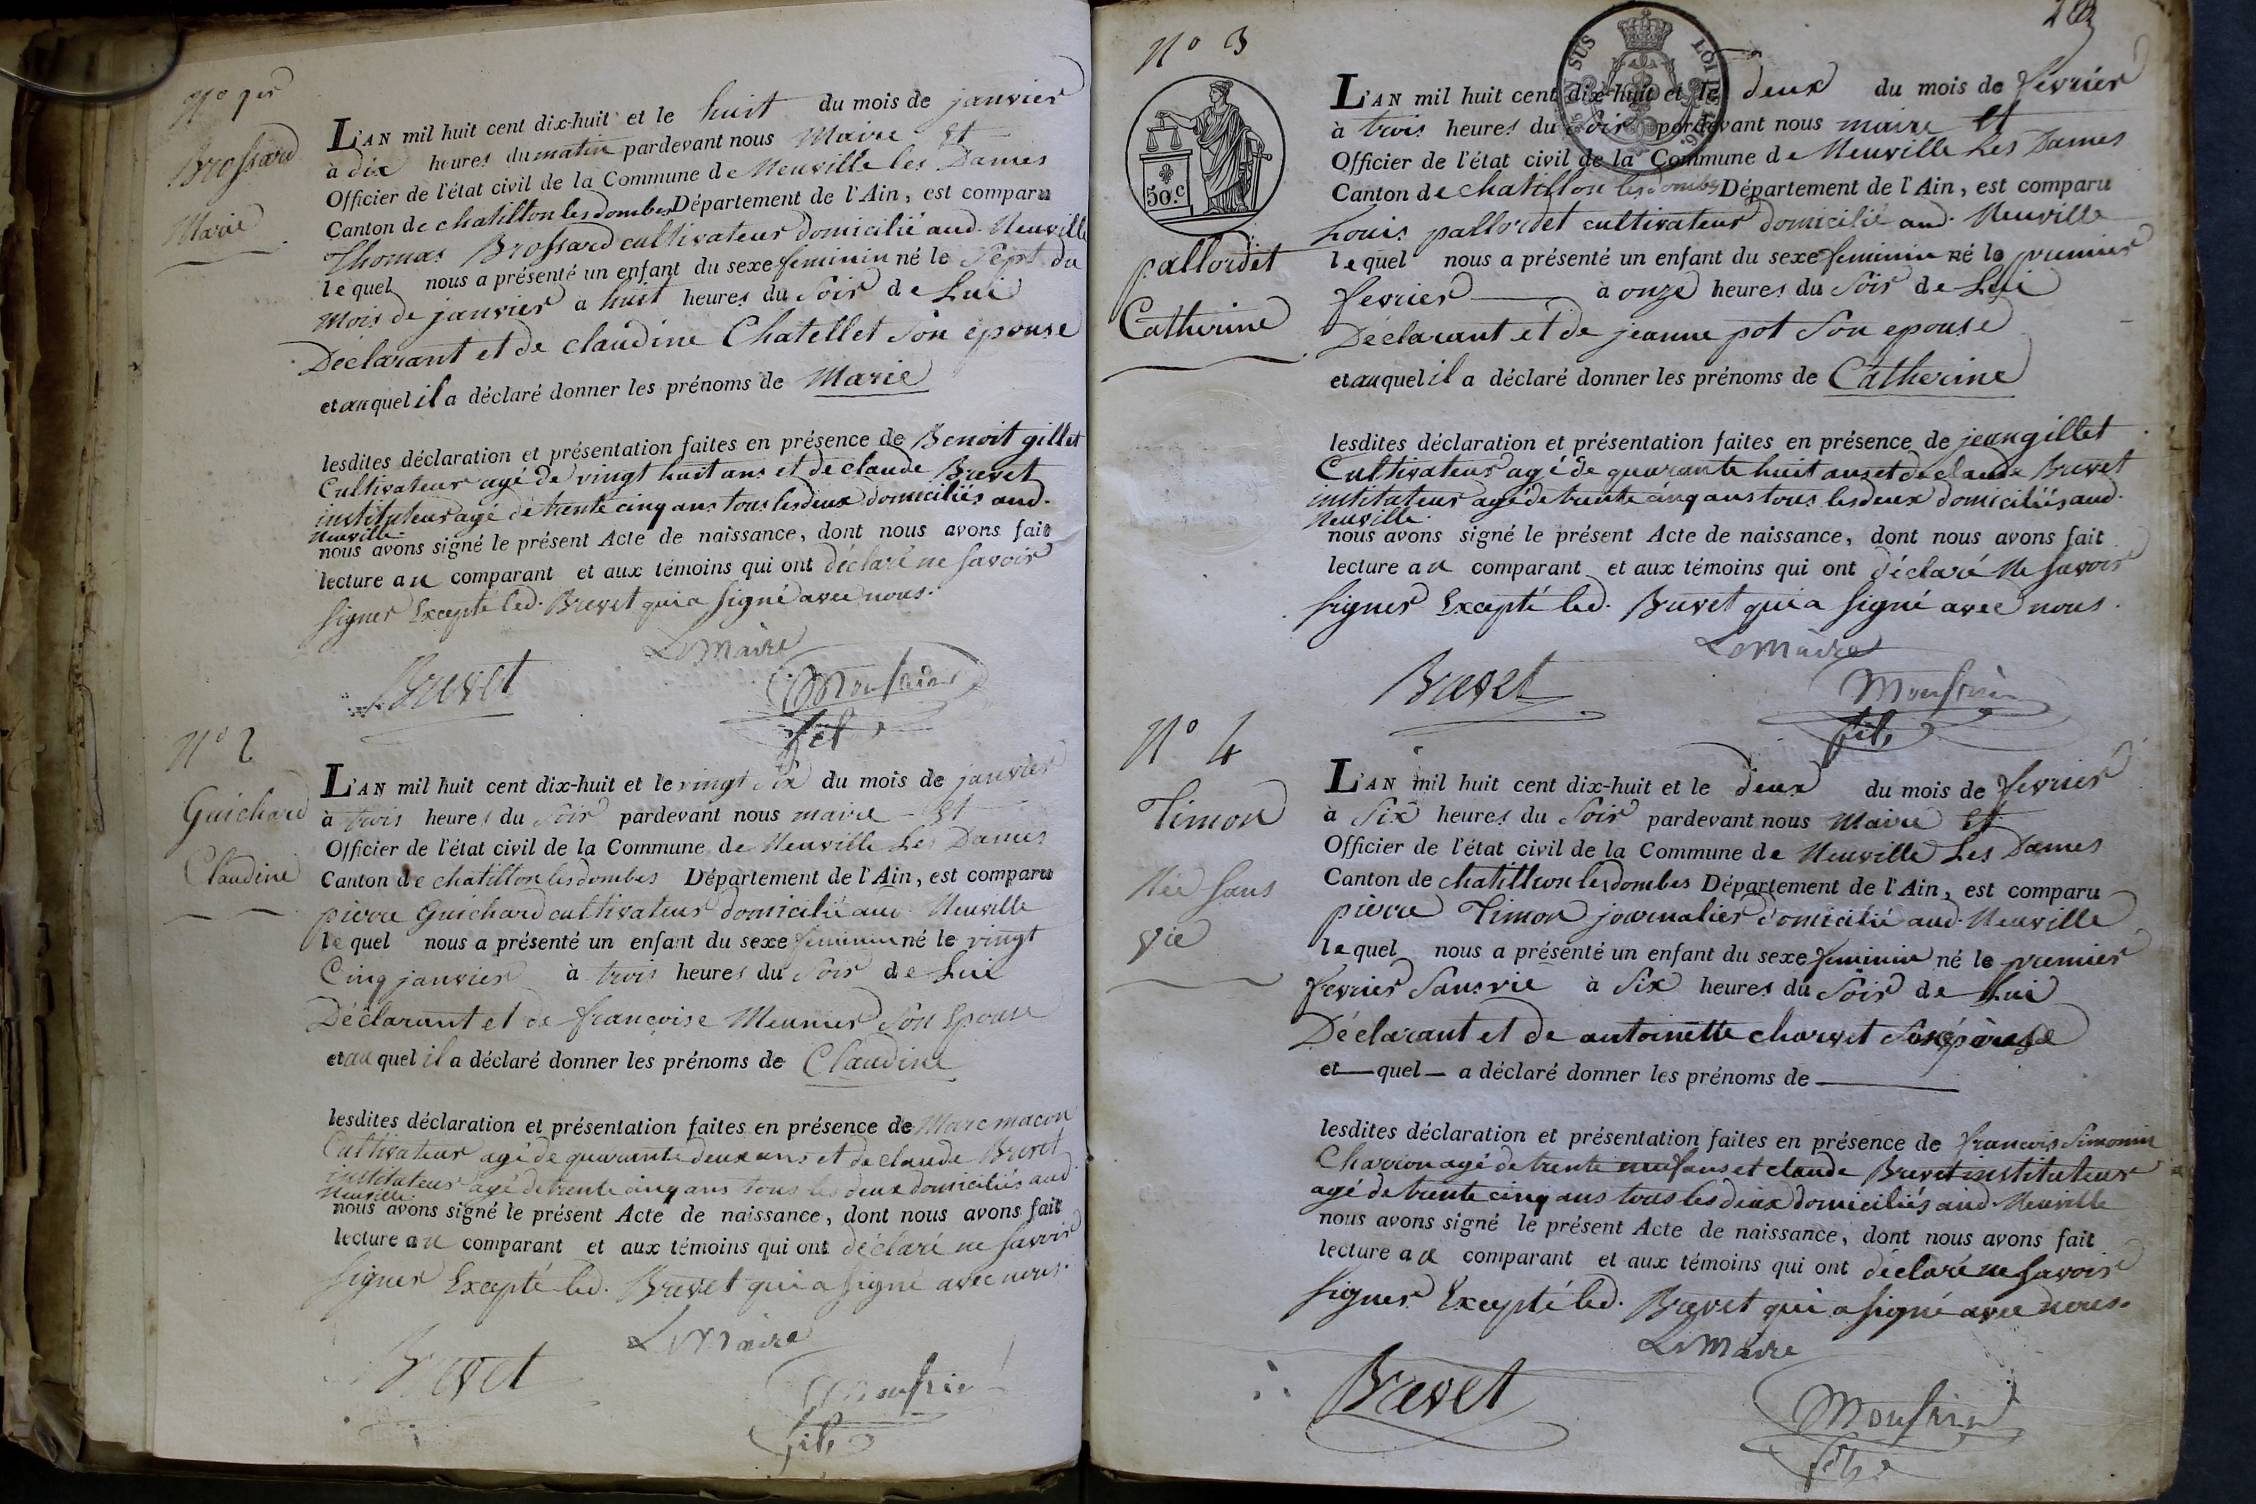 N° 1er
Brossard
Marie
L'AN mil huit cent dix-huit et le huit du mois de janvier
à dix heures du matin pardevant nous Maire Et
Officier de l'état civil de la Commune de Neuville les Dames
Canton de chatillon les dombes Département de l'Ain, est comparu
Thomas Brossard cultivateur domicilié aud. Neuville
lequel nous a présenté un enfant du sexe feminin né le Sept du
Mois de janvier a huit heures du Soir de Lui
Déclarant et de claudine Chatellet Son epouse
et auquel il a déclaré donner les prénoms de Marie
lesdites déclaration et présentation faites en présence de Benoit gillet
Cultivateur agé de vingt huit ans et de claude Brevet
instituteur agé de trente cinq ans tous les deux domiciliés aud.
Neuville.
nous avons signé le présent Acte de naissance, dont nous avons fait
lecture au comparant et aux témoins qui ont déclaré ne savoir
signer Excepté led. Brevet qui a signé avec nous.
Le Maire
Brevet
fils
N° 2
Guichard
Claudine
L'AN mil huit cent dix-huit et le vingt Six du mois de janvier
à trois heures du Soir pardevant nous maire Et
Officier de l'état civil de la Commune de Neuville Les Dames
Canton de chatillon les dombes Département de l'Ain, est comparu
pierre Guichard cultivateur domicilié aud. Neuville
lequel nous a présenté un enfant du sexe feminin né le vingt
Cinq janvier à trois heures du Soir de Lui
Déclarant et de françoise Meunier Son Epouse
et auquel il a déclaré donner les prénoms de Claudine
lesdites déclaration et présentation faites en présence de Marc macon
Cultivateur agé de quarante deux ans et de claude Brevet
instituteur agé de trente cinq ans tous les deux domiciliés aud.
Neuville.
nous avons signé le présent Acte de naissance, dont nous avons fait
lecture au comparant et aux témoins qui ont déclaré ne savoir
signer Excepté led. Brevet qui a signé avec nous.
Le Maire
Brevet
fils
N° 3
50.c
LOI
SUS
pallordet
Catherine
L'AN mil huit cent dix-huit et le deux du mois de fevrier
à trois heures du Soir pardevant nous maire Et
Officier de l'état civil de la Commune de Neuville Les Dames
Canton de chatillon les dombes Département de l'Ain, est comparu
Louis pallordet cultivateur domicilié aud. Neuville
lequel nous a présenté un enfant du sexe feminin né le premier
fevrier à onze heures du Soir de Lui
Déclarant et de jeanne pot Son epouse
et auquel il a déclaré donner les prénoms de Catherine
lesdites déclaration et présentation faites en présence de jean gillet
Cultivateur agé de quarante huit ans et de claude Brevet
instituteur agé de trente cinq ans tous les deux domiciliés aud.
Neuville.
nous avons signé le présent Acte de naissance, dont nous avons fait
lecture au comparant et aux témoins qui ont déclaré Ne savoir
signer Excepté led. Brevet qui a signé avec nous.
Le Maire
Brevet
fils
N° 4
Timon
Née sans
vie
L'AN mil huit cent dix-huit et le deux du mois de fevrier
à Six heures du Soir pardevant nous Maire Et
Officier de l'état civil de la Commune de Neuville Les Dames
Canton de chatillon les dombes Département de l'Ain, est comparu
pierre Timon journalier domicilié aud. Neuville
lequel nous a présenté un enfant du sexe feminin né le premier
fevrier Sans vie à Six heures du Soir de Lui
Déclarant et de antoinette charvet Son épouse
et quel a déclaré donner les prénoms de
lesdites déclaration et présentation faites en présence de francois Simonin
Charron agé de trente neuf ans et claude Brevet instituteur
agé de trente cinq ans tous les deux domiciliés aud. Neuville
nous avons signé le présent Acte de naissance, dont nous avons fait
lecture au comparant et aux témoins qui ont déclaré ne savoir
signer Excepté led. Brevet qui a signé avec nous.
Le Maire
Brevet
fils